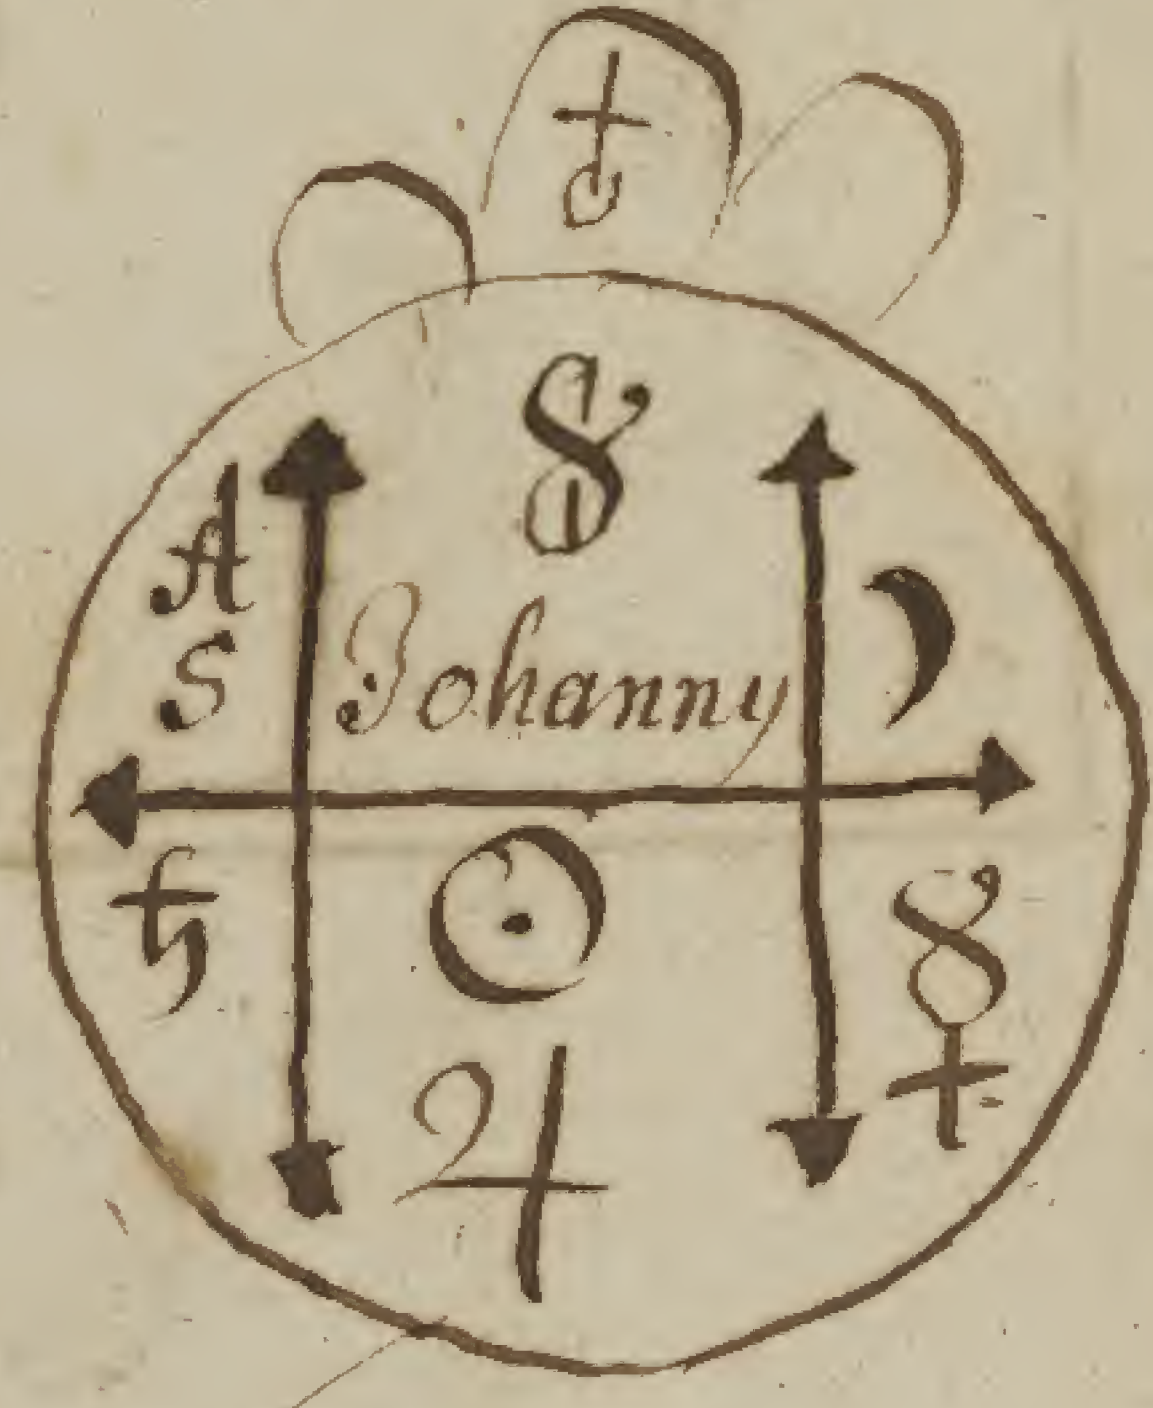 A
S
Johanny